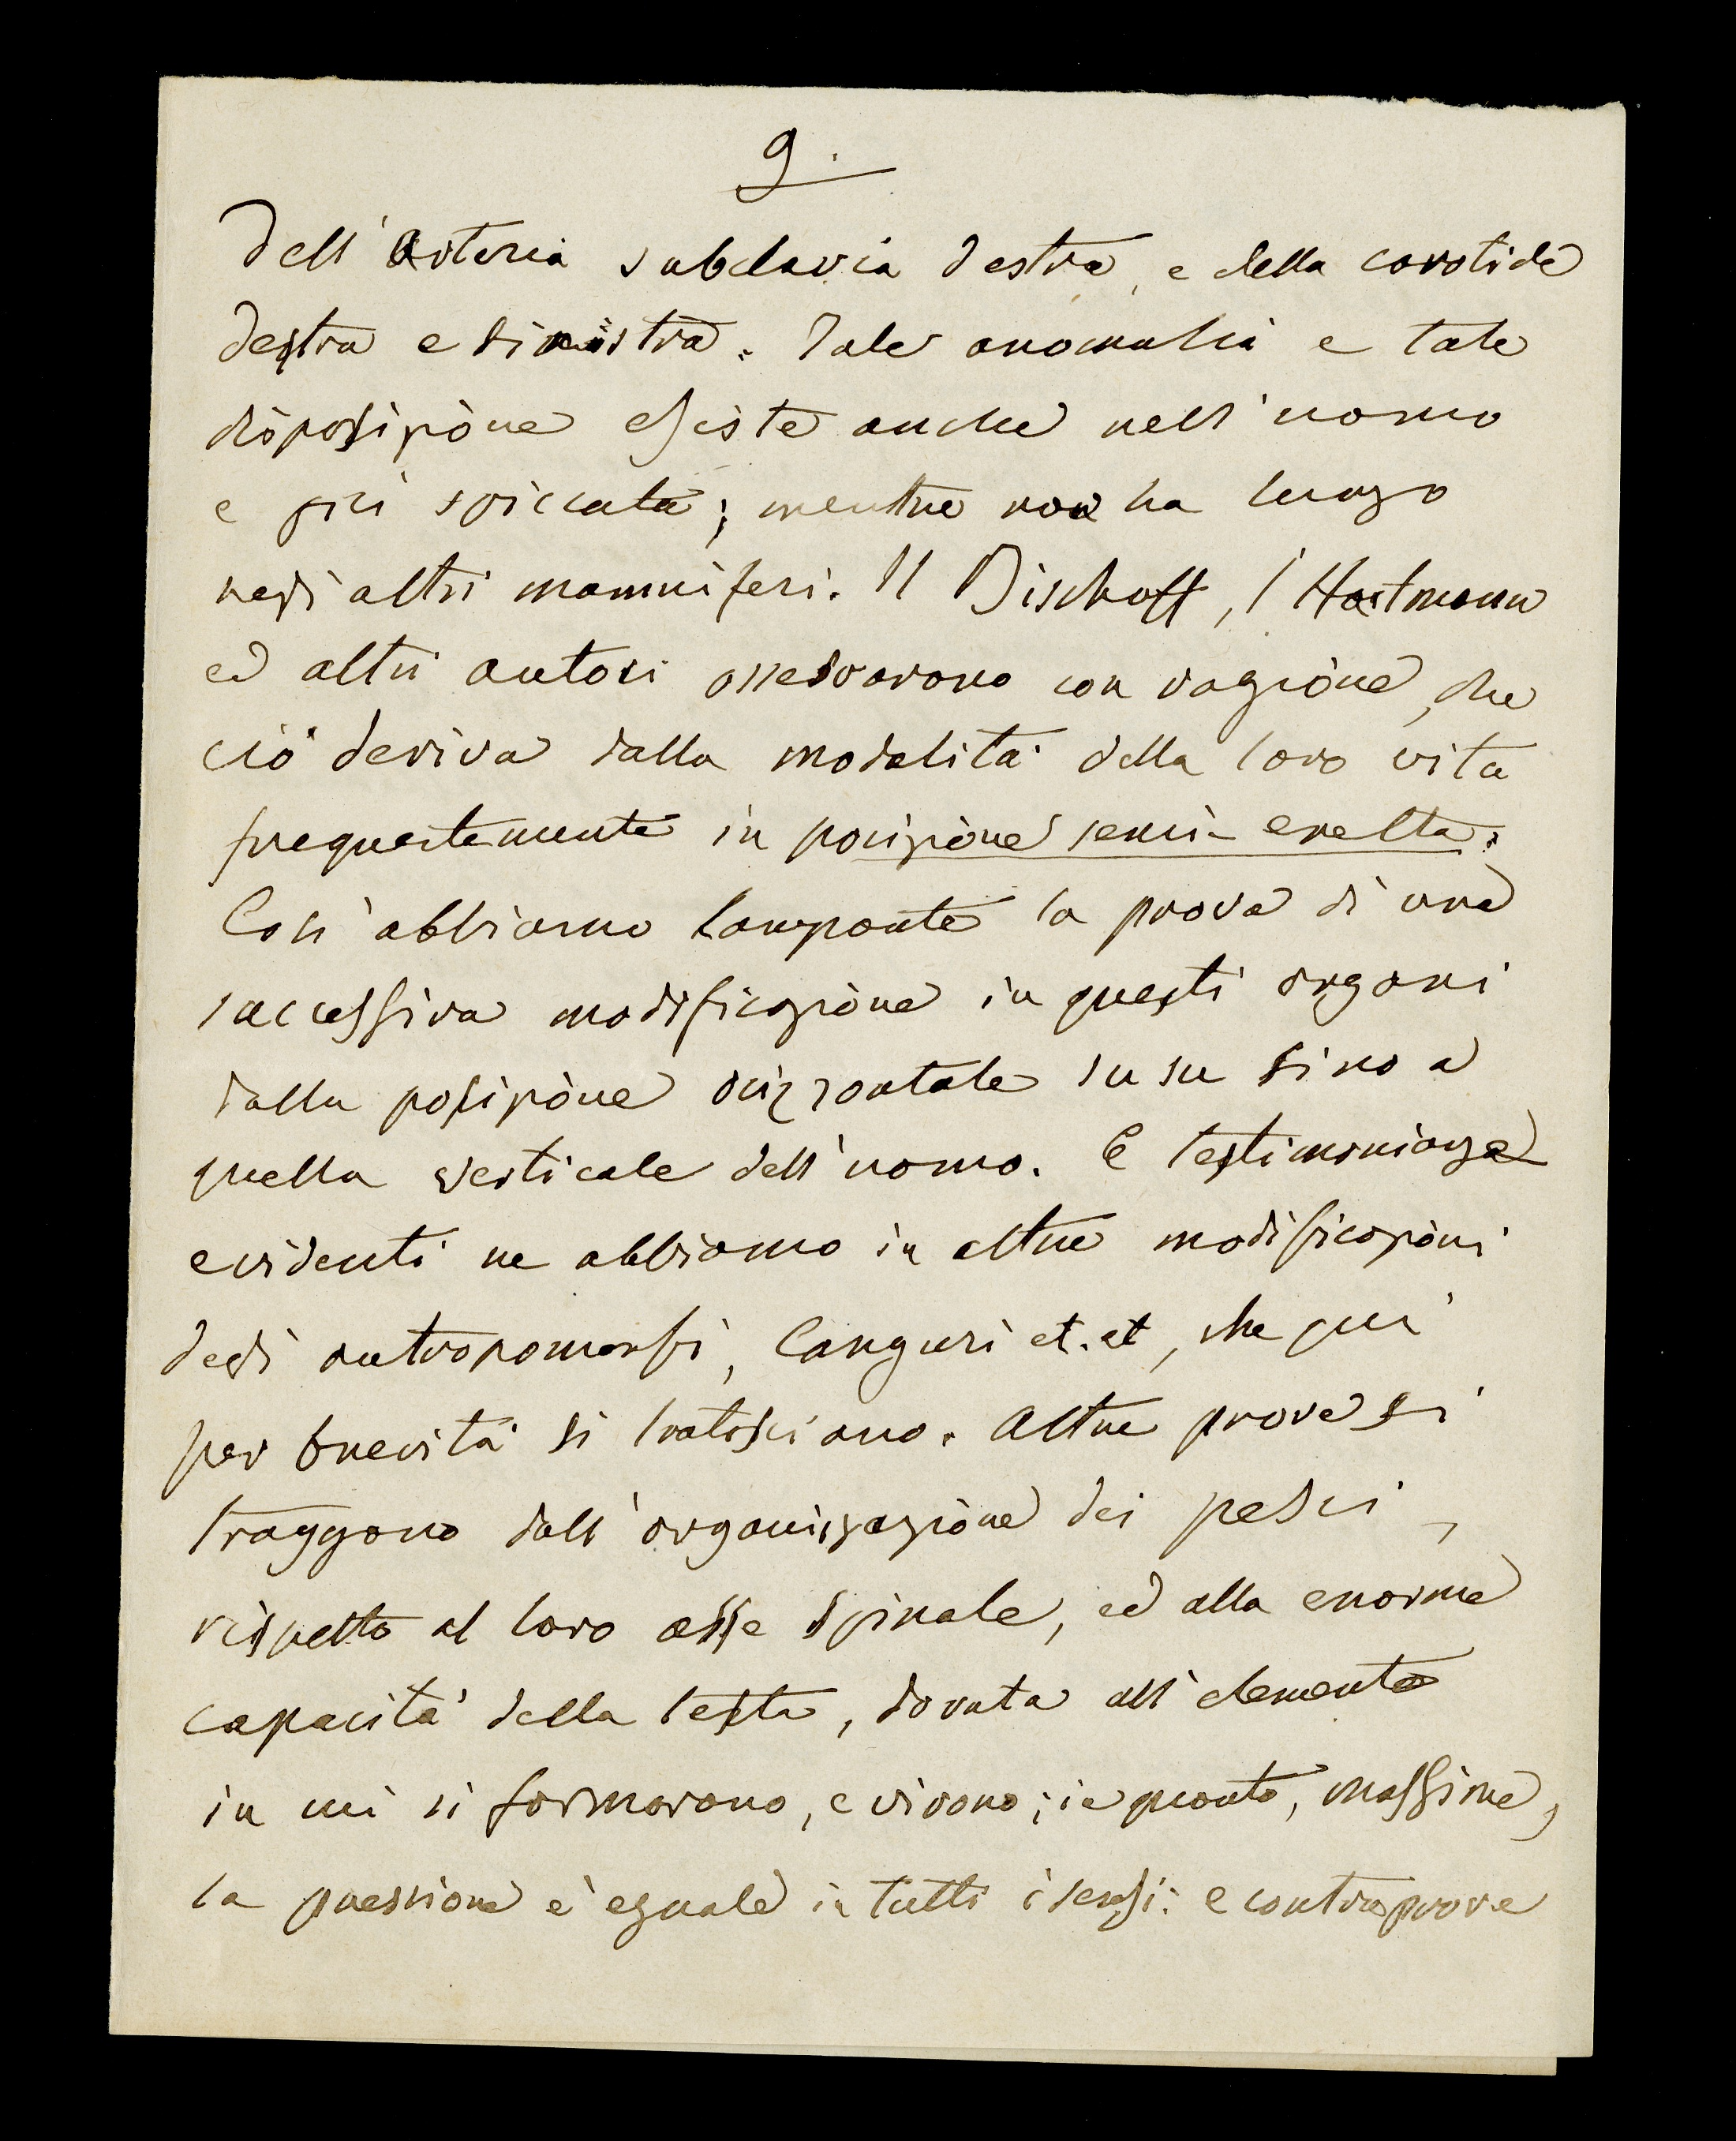 9.
dell'Arteria subclavia destra, e della carotide
destra e sinistra. Tale anomalia e tale
disposizione esiste anche nell'uomo
e più spiccata; mentre non ha luogo
negli altri mammiferi. Il Bischoff, l'Hartmann
ed altri autori osservarono con ragione, che
ciò deriva dalla modalità della loro vita
frequentemente in posizione semi-eretta.
Così abbiamo lampante la prova di una
successiva modificazione in questi organi
dalla posizione orizzontale su su sino a
quella verticale dell'uomo. E testimonianze
evidenti ne abbiamo in altre modificazioni
degli antropomorfi, Canguri et. et, che qui
per brevità si tralasciano. Altre prove si
traggono dall'organizzazione dei pesci,
rispetto al loro asse spinale, ed alla enorme
capacità della testa, dovuta all'elemento
in cui si formarono, e vivono; in quanto, massime,
la pressione è eguale in tutti i sensi: e controprove